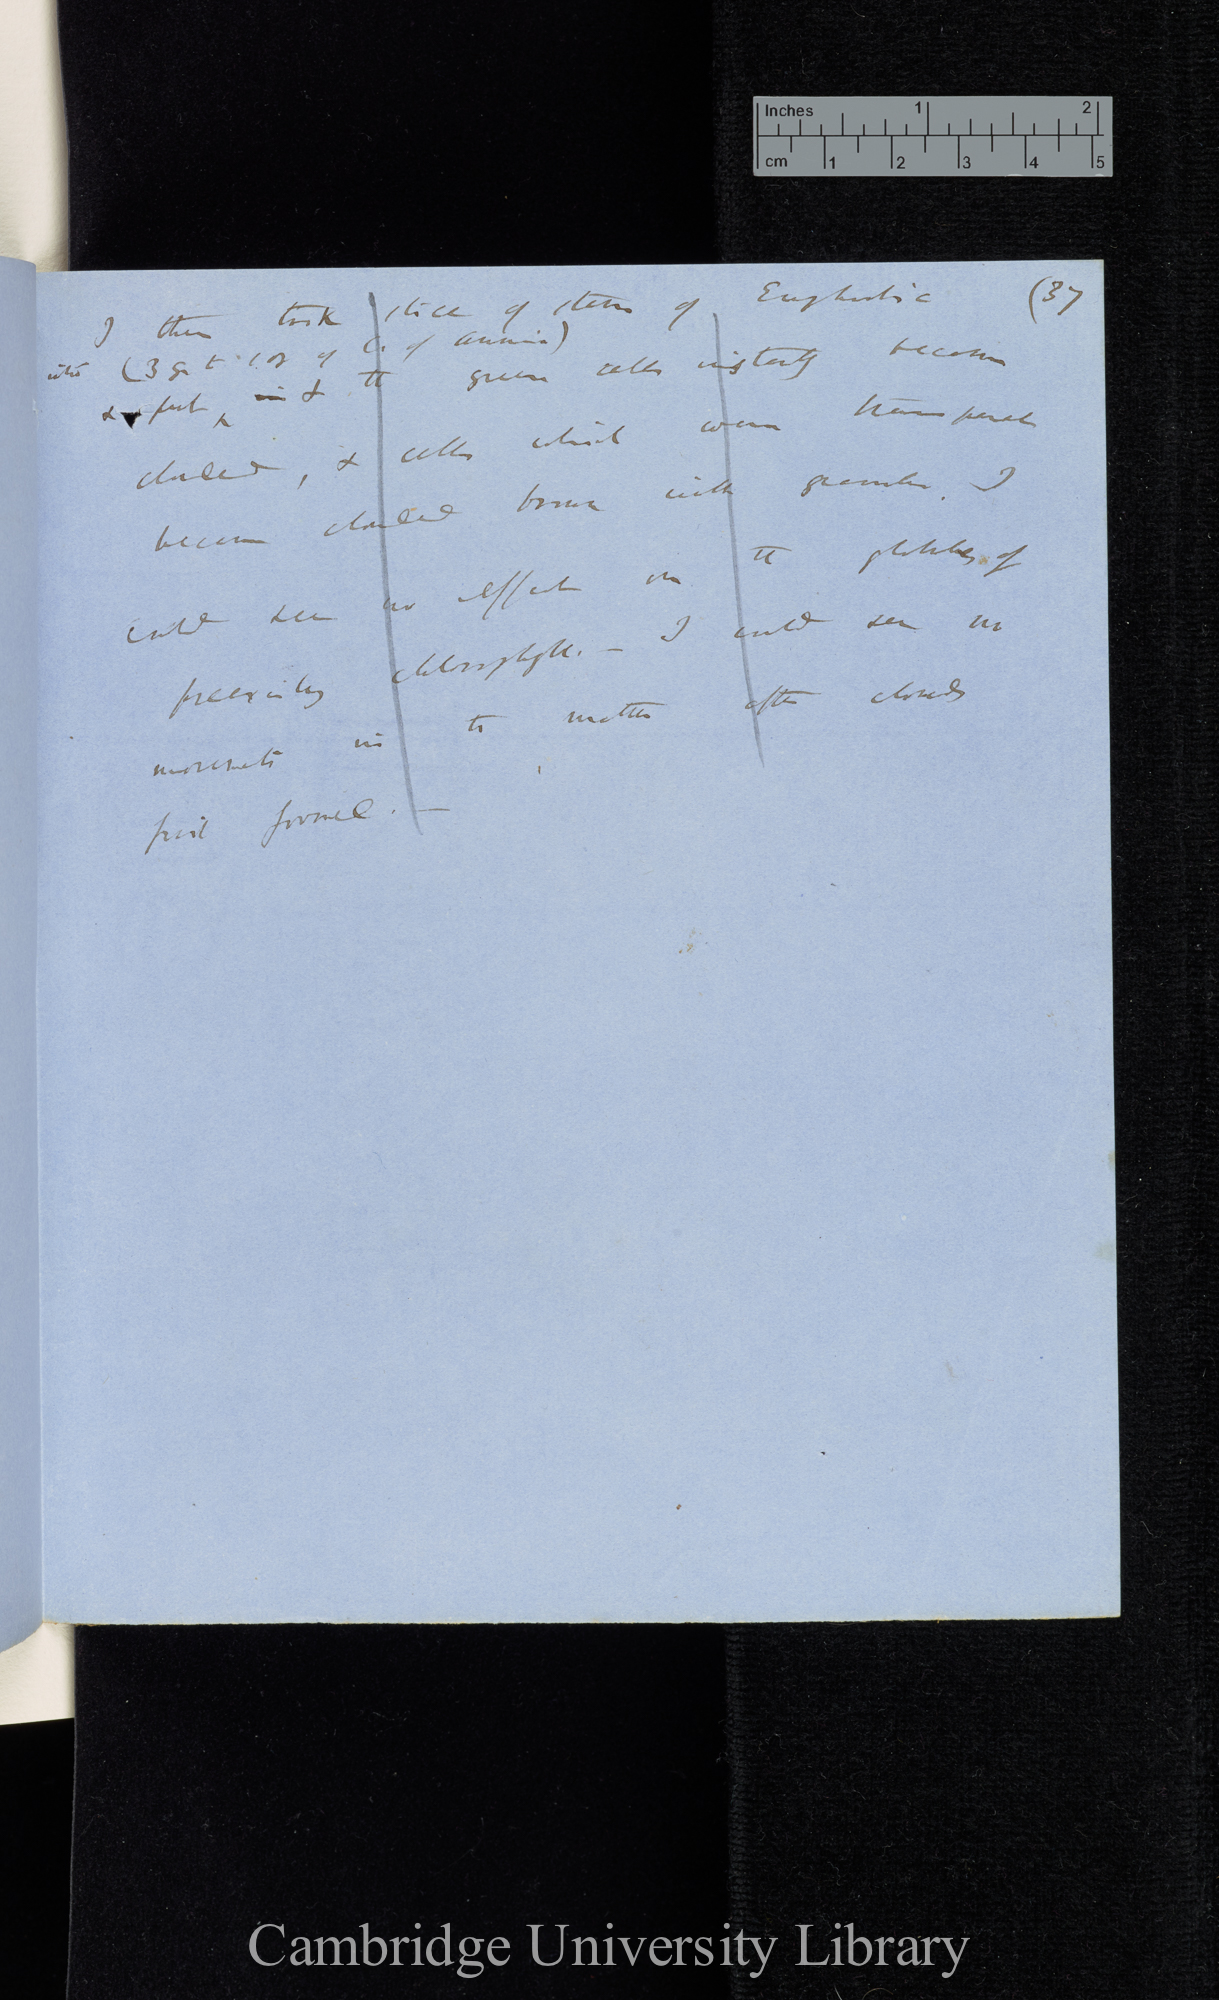 Inches 1 2
cm 1 2 3 4 5
(37
I then took slice of stem of Euphorbia
into (3 gr to 1 oz of C. of ammonia)
& put ^ in & the green cells instantly became
clouded, & cells which were transparent
became clouded brown with granules. I
could see no effect on the globules of
preexisting chlorophyll. — I could see no
movements in to matter after clouds
first formed. —
Cambridge University Library